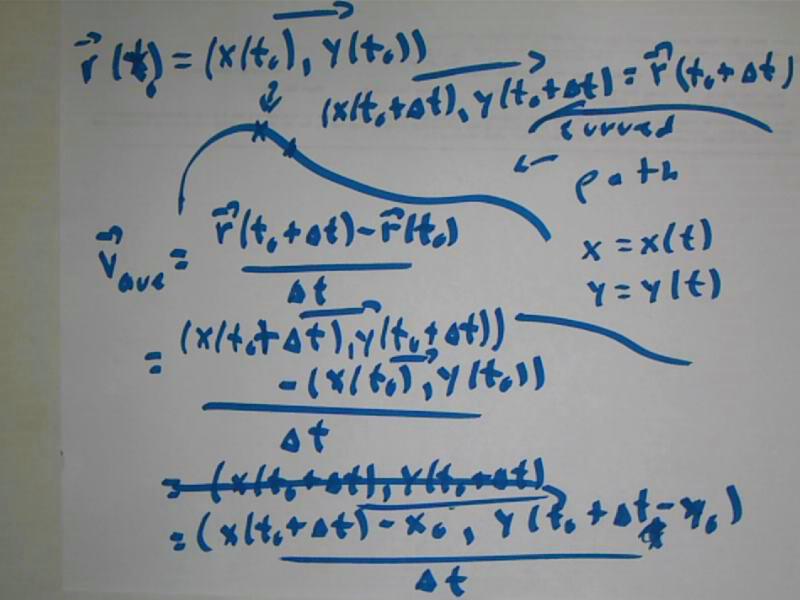 r⃗(t₀) = (x(t₀), y(t₀))
(x(t₀+Δt), y(t₀+Δt) = r⃗(t₀+Δt)
curved
path
x = x(t)
y = y(t)
v⃗ave = r⃗(t₀+Δt) - r⃗(t₀)
Δt
= (x(t₀+Δt), y(t₀+Δt))
- (x(t₀), y(t₀))
Δt
= (x(t₀+Δt), y(t₀+Δt)
= (x(t₀+Δt) - x₀, y(t₀+Δt - y₀)
Δt